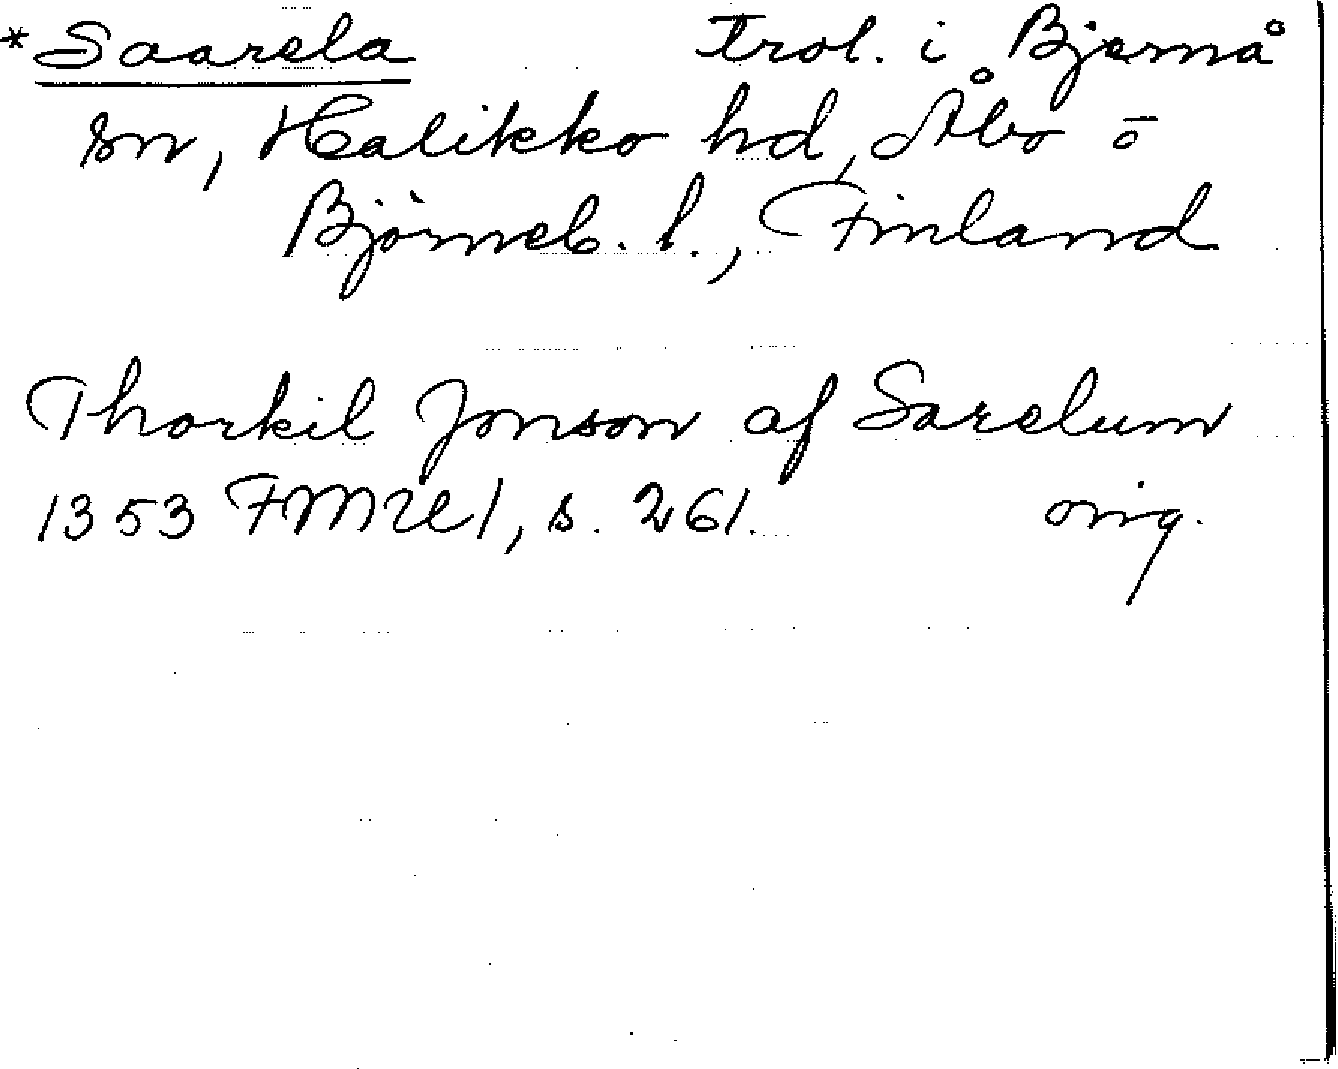 *Saarela Trol. i Bjernå
sn, Halikko hd, Åbo o
Björneb. l., Finland
Thorkil Jonson af Sarelum
1353 FMU 1, s. 261. orig.